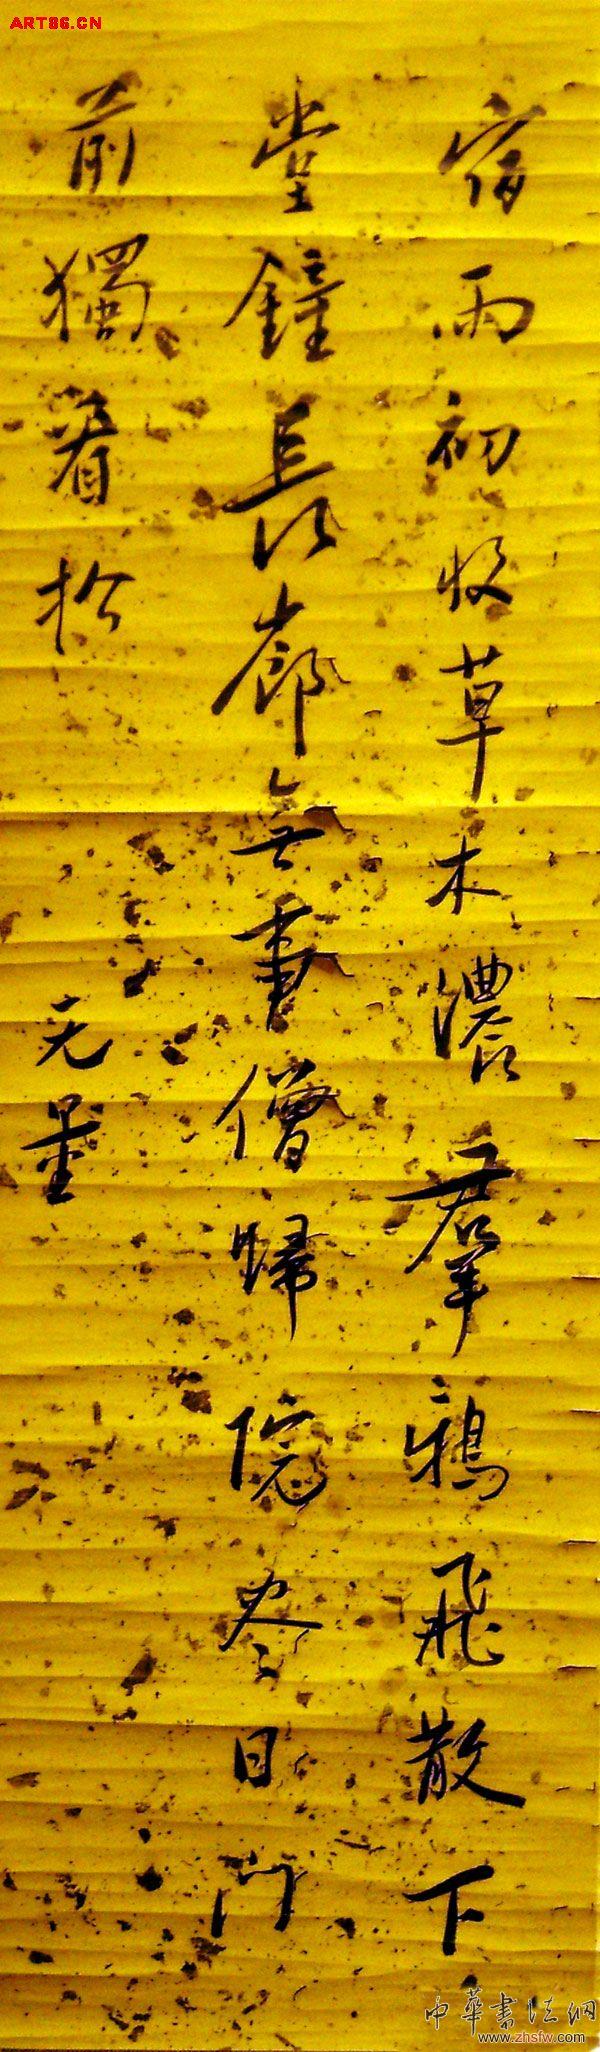 ART86.CN
宿雨初收草木濃羣鴉飛散下
堂鐘長廊無事僧歸院尽日門
前獨看松
无量
中華書法網
www.zhsfw.com